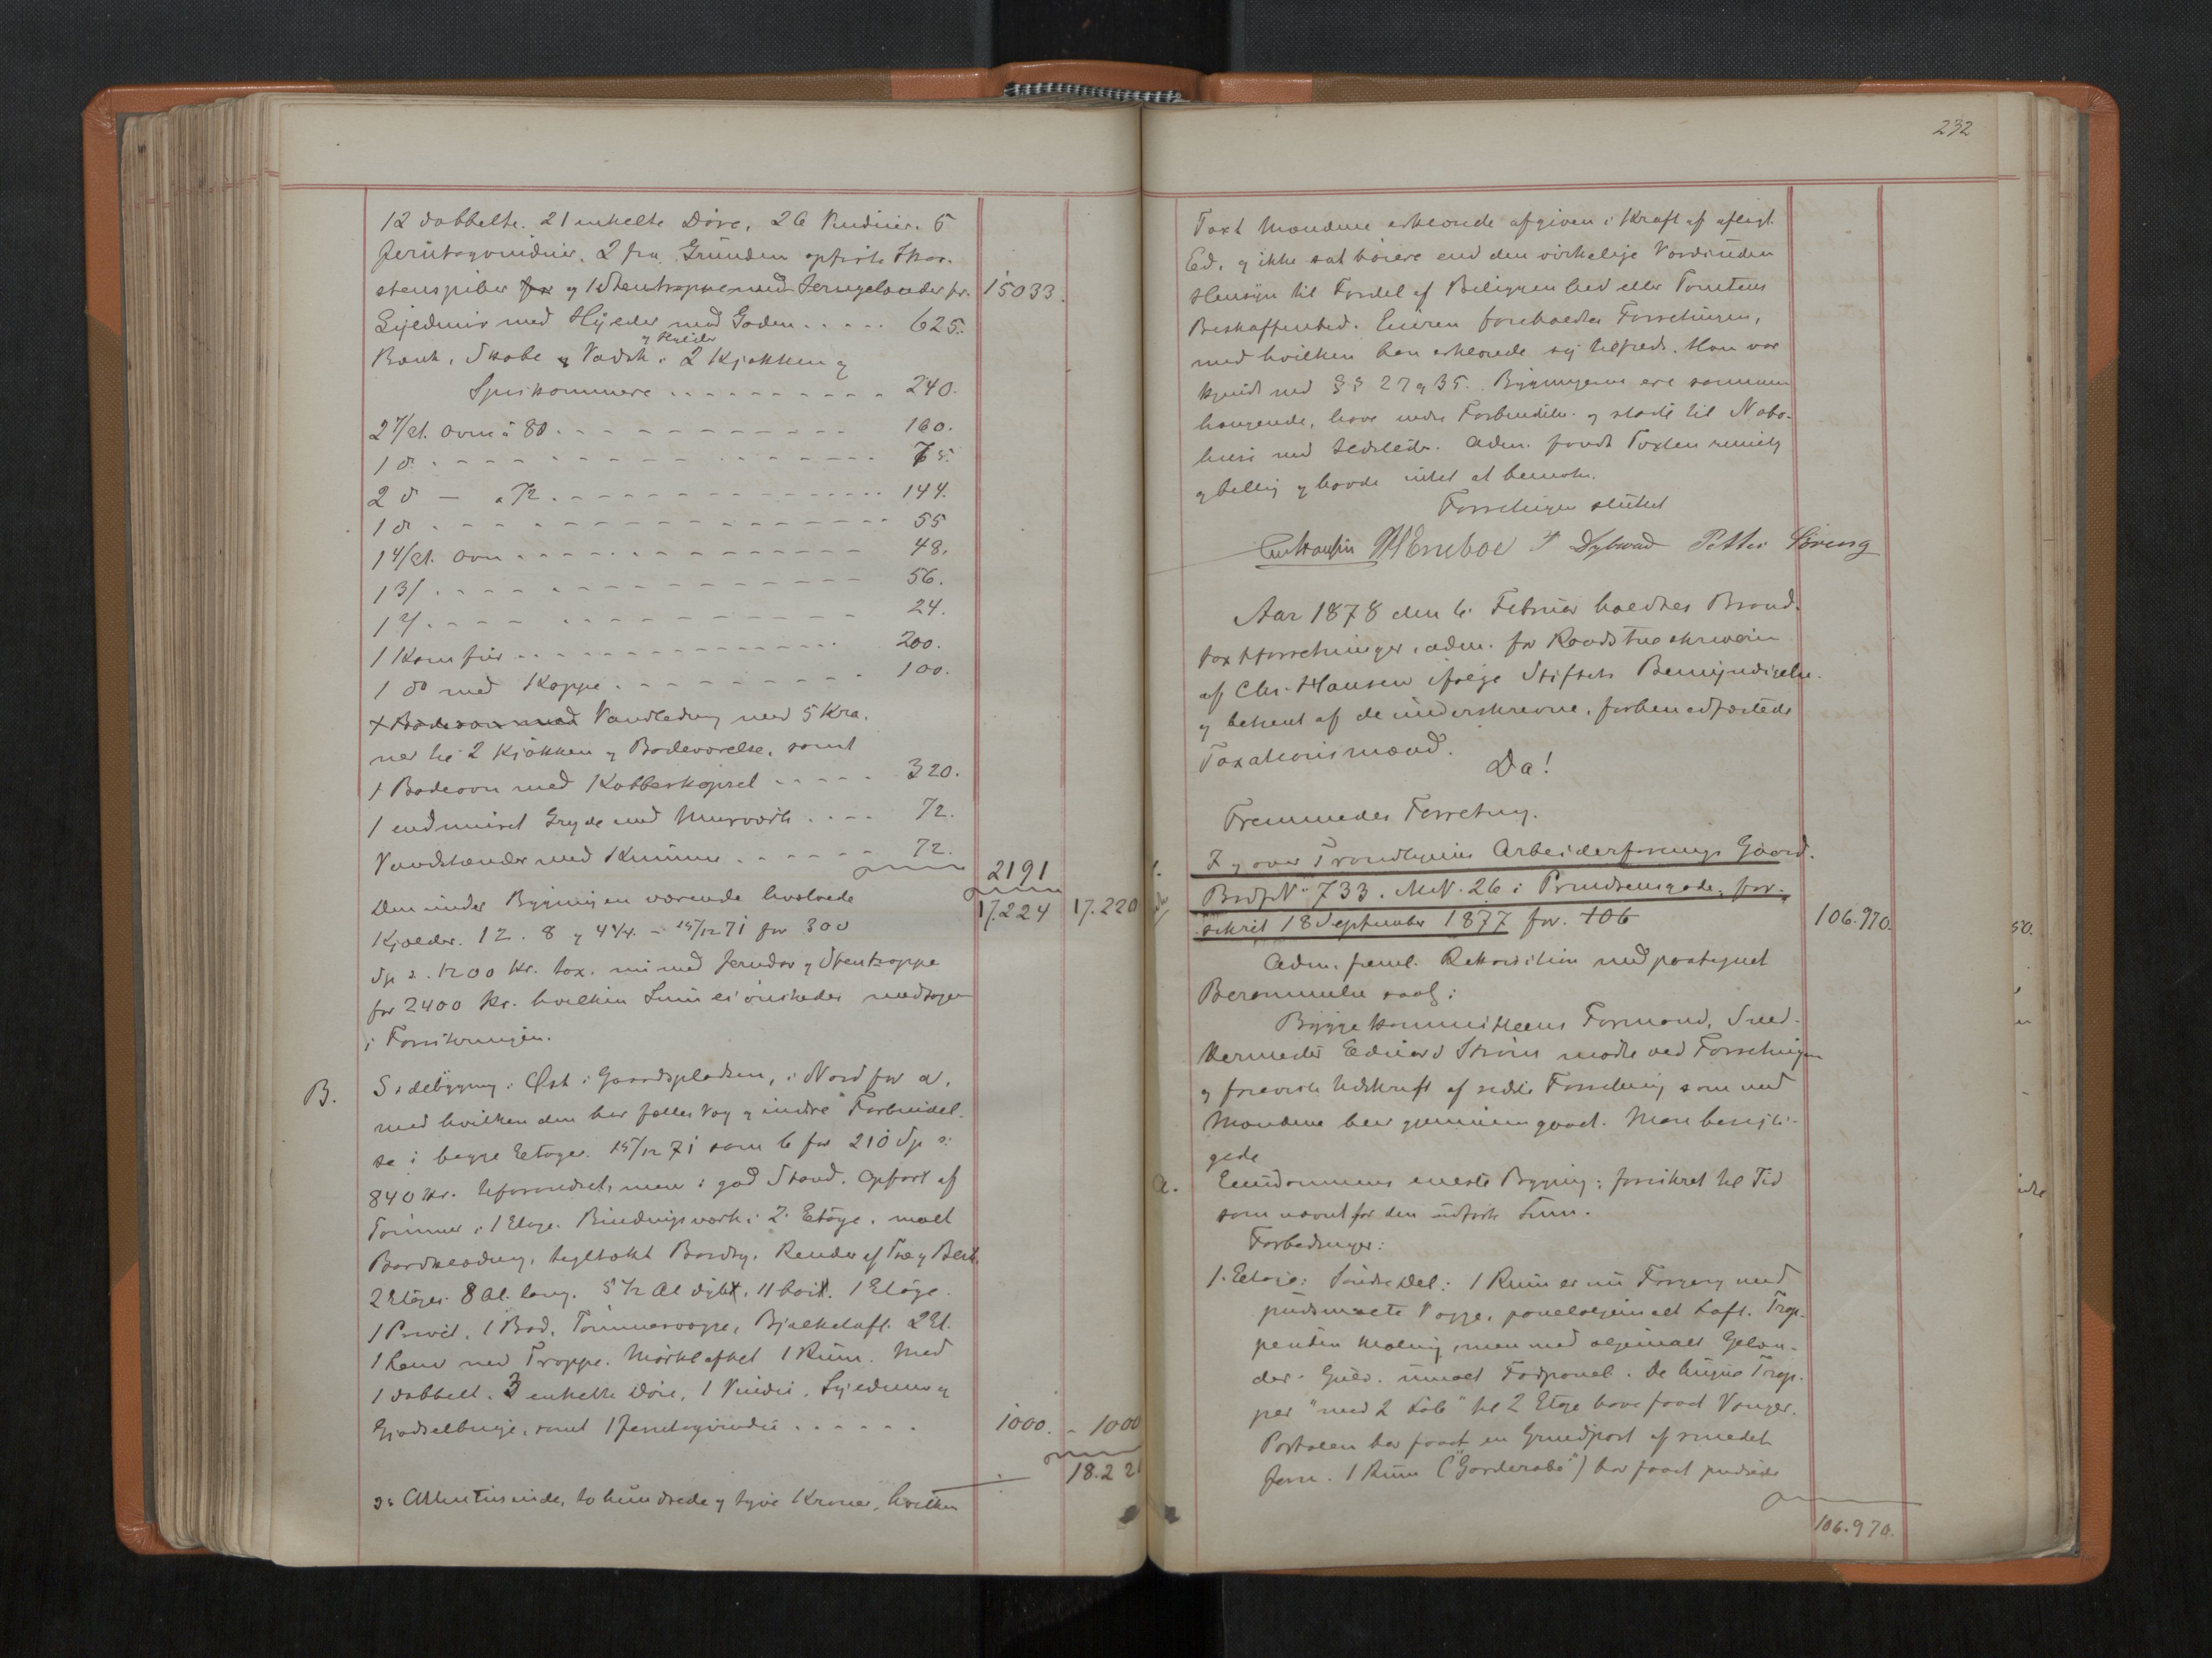 12 dobbelte. 21 enkelte Döre, 26 Vinduer. 5
Jerntagvinduer, 2 fra Grunden opförte Skor-
stenspiber og 1 Stentrappe med Jerngelænder for 15033.
Ligedmir med Hylder mod Gaden . . . . . 625.
og Hylder
Bænk, Skabe & Vadsk i 2 Kjøkken og
Spiskammere . . . . . . . . . 240.
2 7/et. ovne à 80 . . . . . . . . 160.
1 do . . . . . . . . 75.
2 do — a 72 . . . . . . . . 144.
1 do . . . . . . . . 55
1 4/et. ovn . . . . . . . . 48.
1 3/ . . . . . . . . 56.
1 2/ . . . . . . . . 24.
1 Komfür . . . . . . . . 200.
1 do med Kappe . . . . . . . . 100.
Vandledning med 5 Kra-
ner til 2 Kjökken og Badeværelse, samt
1 Badeovn med Kobberkjedel . . . . . 320.
1 indmuret Gryde med Murværk . . . . 72.
Vandstænder med Kumme . . . . . . 72.
2191
17.224 17.220
Den under Bygningen værende hvælvede
Kjælder. 12. 8 og 4 1/4. – 15/12 71 for 300
Sp 2. 1200 Kr. tax. nu med Jerndør og Stentrappe
for 2400 Kr. hvilken Sum ei önskedes medtagen
i Forsikringen.
B. Sidebygning i Öst i Gaardspladsen, i Nord for a,
med hvilken den har fælles Væg og indre Forbindel-
se i begge Etager. 15/12 71 som b for 210 Sp 2:
840 Kr. Uforandret, men i god Stand. Opfört af
Tömmer i 1 Etage. Bindingsværk i 2. Etage. malt
Bordklædning, tegltækt Bordtag, Render af Træ og Blik.
2 Etager. 8 Al. lang. 5 1/2 Al dyb, 11 höi. 1 Etage.
1 Privet, 1 Bod, Tömmervægge, Bjælkeloft. 2 Et.
1 Rum med Trappe. Mörkloftet 1 Rüm. Med
1 dobbelt. 3 enkelte Döre, 1 Vindü,
Gjödselbinge, samt 1 Jerntagvindü . . . . . . 1000. – 1000
18.22
2: Atten Tusinde, to hundrede og tyve Kroner, hvilken
232
Taxt Mændene erklærede afgiven i Kraft af aflagt
Ed, og ikke sat höiere end den virkelige Værdi uden
Hensyn til Fordel af Beliggenhed eller Tomtens
Beskaffenhed. Eieren foreholdtes Forretningen,
med hvilken han erklærede sig tilfreds. Han var
kjendt med §§ 27 og 35. Bygningerne ere sammen-
hængende, have indre Forbindelse og stöde til Nabo-
huse med Ildsteder. Adm. fandt Taxten rimelig
og billig og havde intet at bemærke.
Forretningen sluttet
Chr Hansen Dybwad Petter Löreng
Aar 1878 den 6. Februar holdtes Brand-
taxtforretninger, adm. for Raadstueskriveren
af Chr. Hansen ifölge Stiftets Bemyndigelse
og betjent af de underskrevne, forhen edfæstede
Taxationsmænd.
Da!
Fremmedes Forretning.
1. I og over Trondhjems Arbeiderforenings Gaard.
BrdfN° 733. MN. 26 i Prindsensgade, for-
sikret 18 September 1877 for 106 106.970.
Adm. freml. Rekvisition med paategnet
Berammelse saal:
Byggekommitteens Formand, Sned-
kermester Edvard Ström mödte ved Forretningen
og foreviste Udskrift af sidste Forretning som med
Mændene blev gjennemgaaet. Man besigti-
gede
a. Eiendommens eneste Bygning: forsikret til Tid
som nævnt for den udförte Sum.
Forbedringer:
1. Etage: Söndre Del: 1 Rüm er nü Forgang med
pudsmalte Vægge, panel oljemalt Loft. Trap-
pen uden Maling, men med oljemalt Gelæn-
der. Gulv. umalt Fodpanel. De tvende Trap-
per "med 2 Löb" til 2 Etage have faaet Vanger.
Portalen har faaet en Grindport af smedet
Jern. 1 Rüm ("Garderobe") har faaet pudsede
106.970.